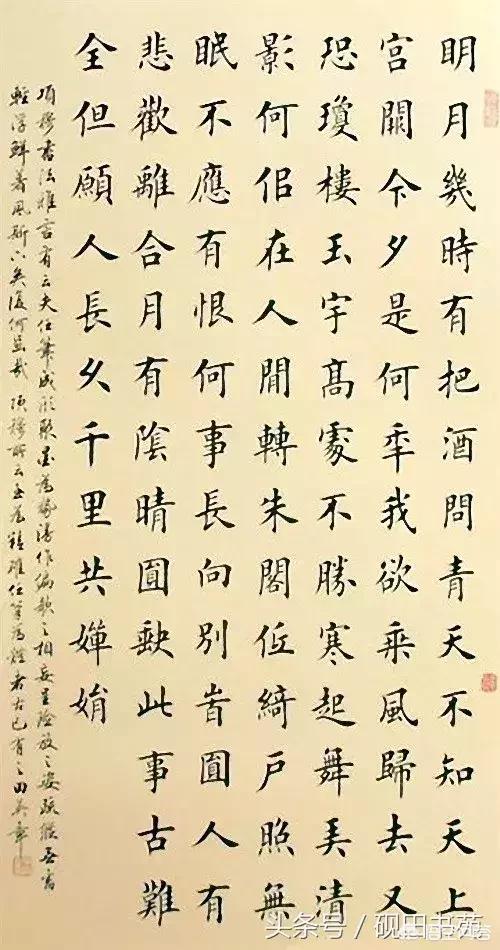 明月幾時有把酒問青天不知天上
宮闕今夕是何年我欲乘風歸去又
恐瓊樓玉宇高處不勝寒起舞弄清
影何佀在人閒轉朱閣低綺戶照無
眠不應有恨何事長向別旹圓人有
悲歡離合月有陰晴圓缺此事古難
全但願人長久千里共嬋娟
項穆書法雅言有云夫任筆成形聚墨為勢漫作偏欹之相妄呈險放之姿疏縱無
輕浮鮮著風斯下矣復何 項穆所云 任筆為體者古已有之田英章
头条号/砚田书苑